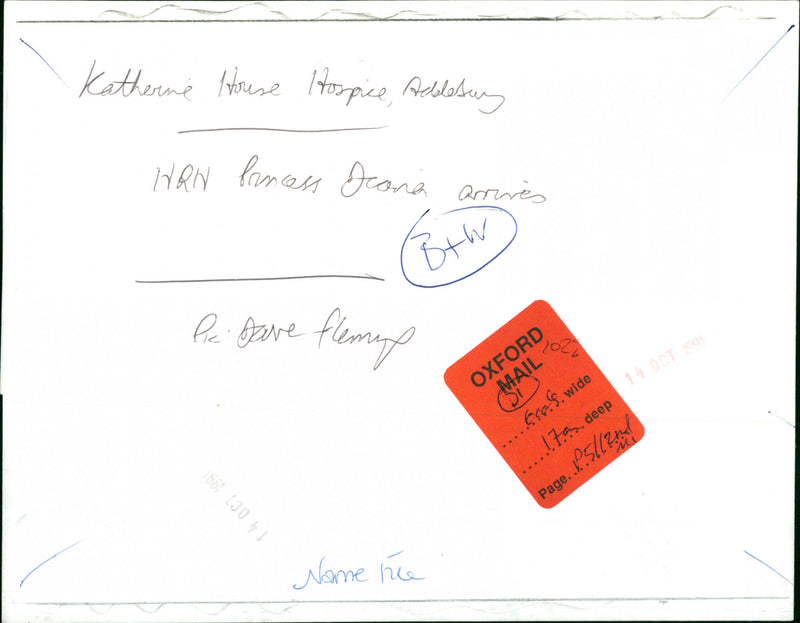 Katherine House Hospice, Adderbury
HRH Princess Diana arrives
B+W
Pic: Dave Fleming
OXFORD
MAIL
wide
17cm deep
Page
14 OCT 1991
14 OCT 1991
Name File